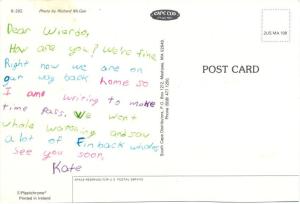 B-282 Photo by Richard McGee
CAPE COD
2US MA 198
POST CARD
Dear Wierdo,
How are you? We're fine.
Right now we are on
our way back home so
I am writing to make
time pass. We went
whale watching and saw
a lot of Finback whales
See you soon,
Kate
South Cape Distributors, P.O. Box 1212, Mashpee, MA 02649
SPACE RESERVED FOR U.S. POSTAL SERVICE
©Plastichrome®
Printed in Ireland